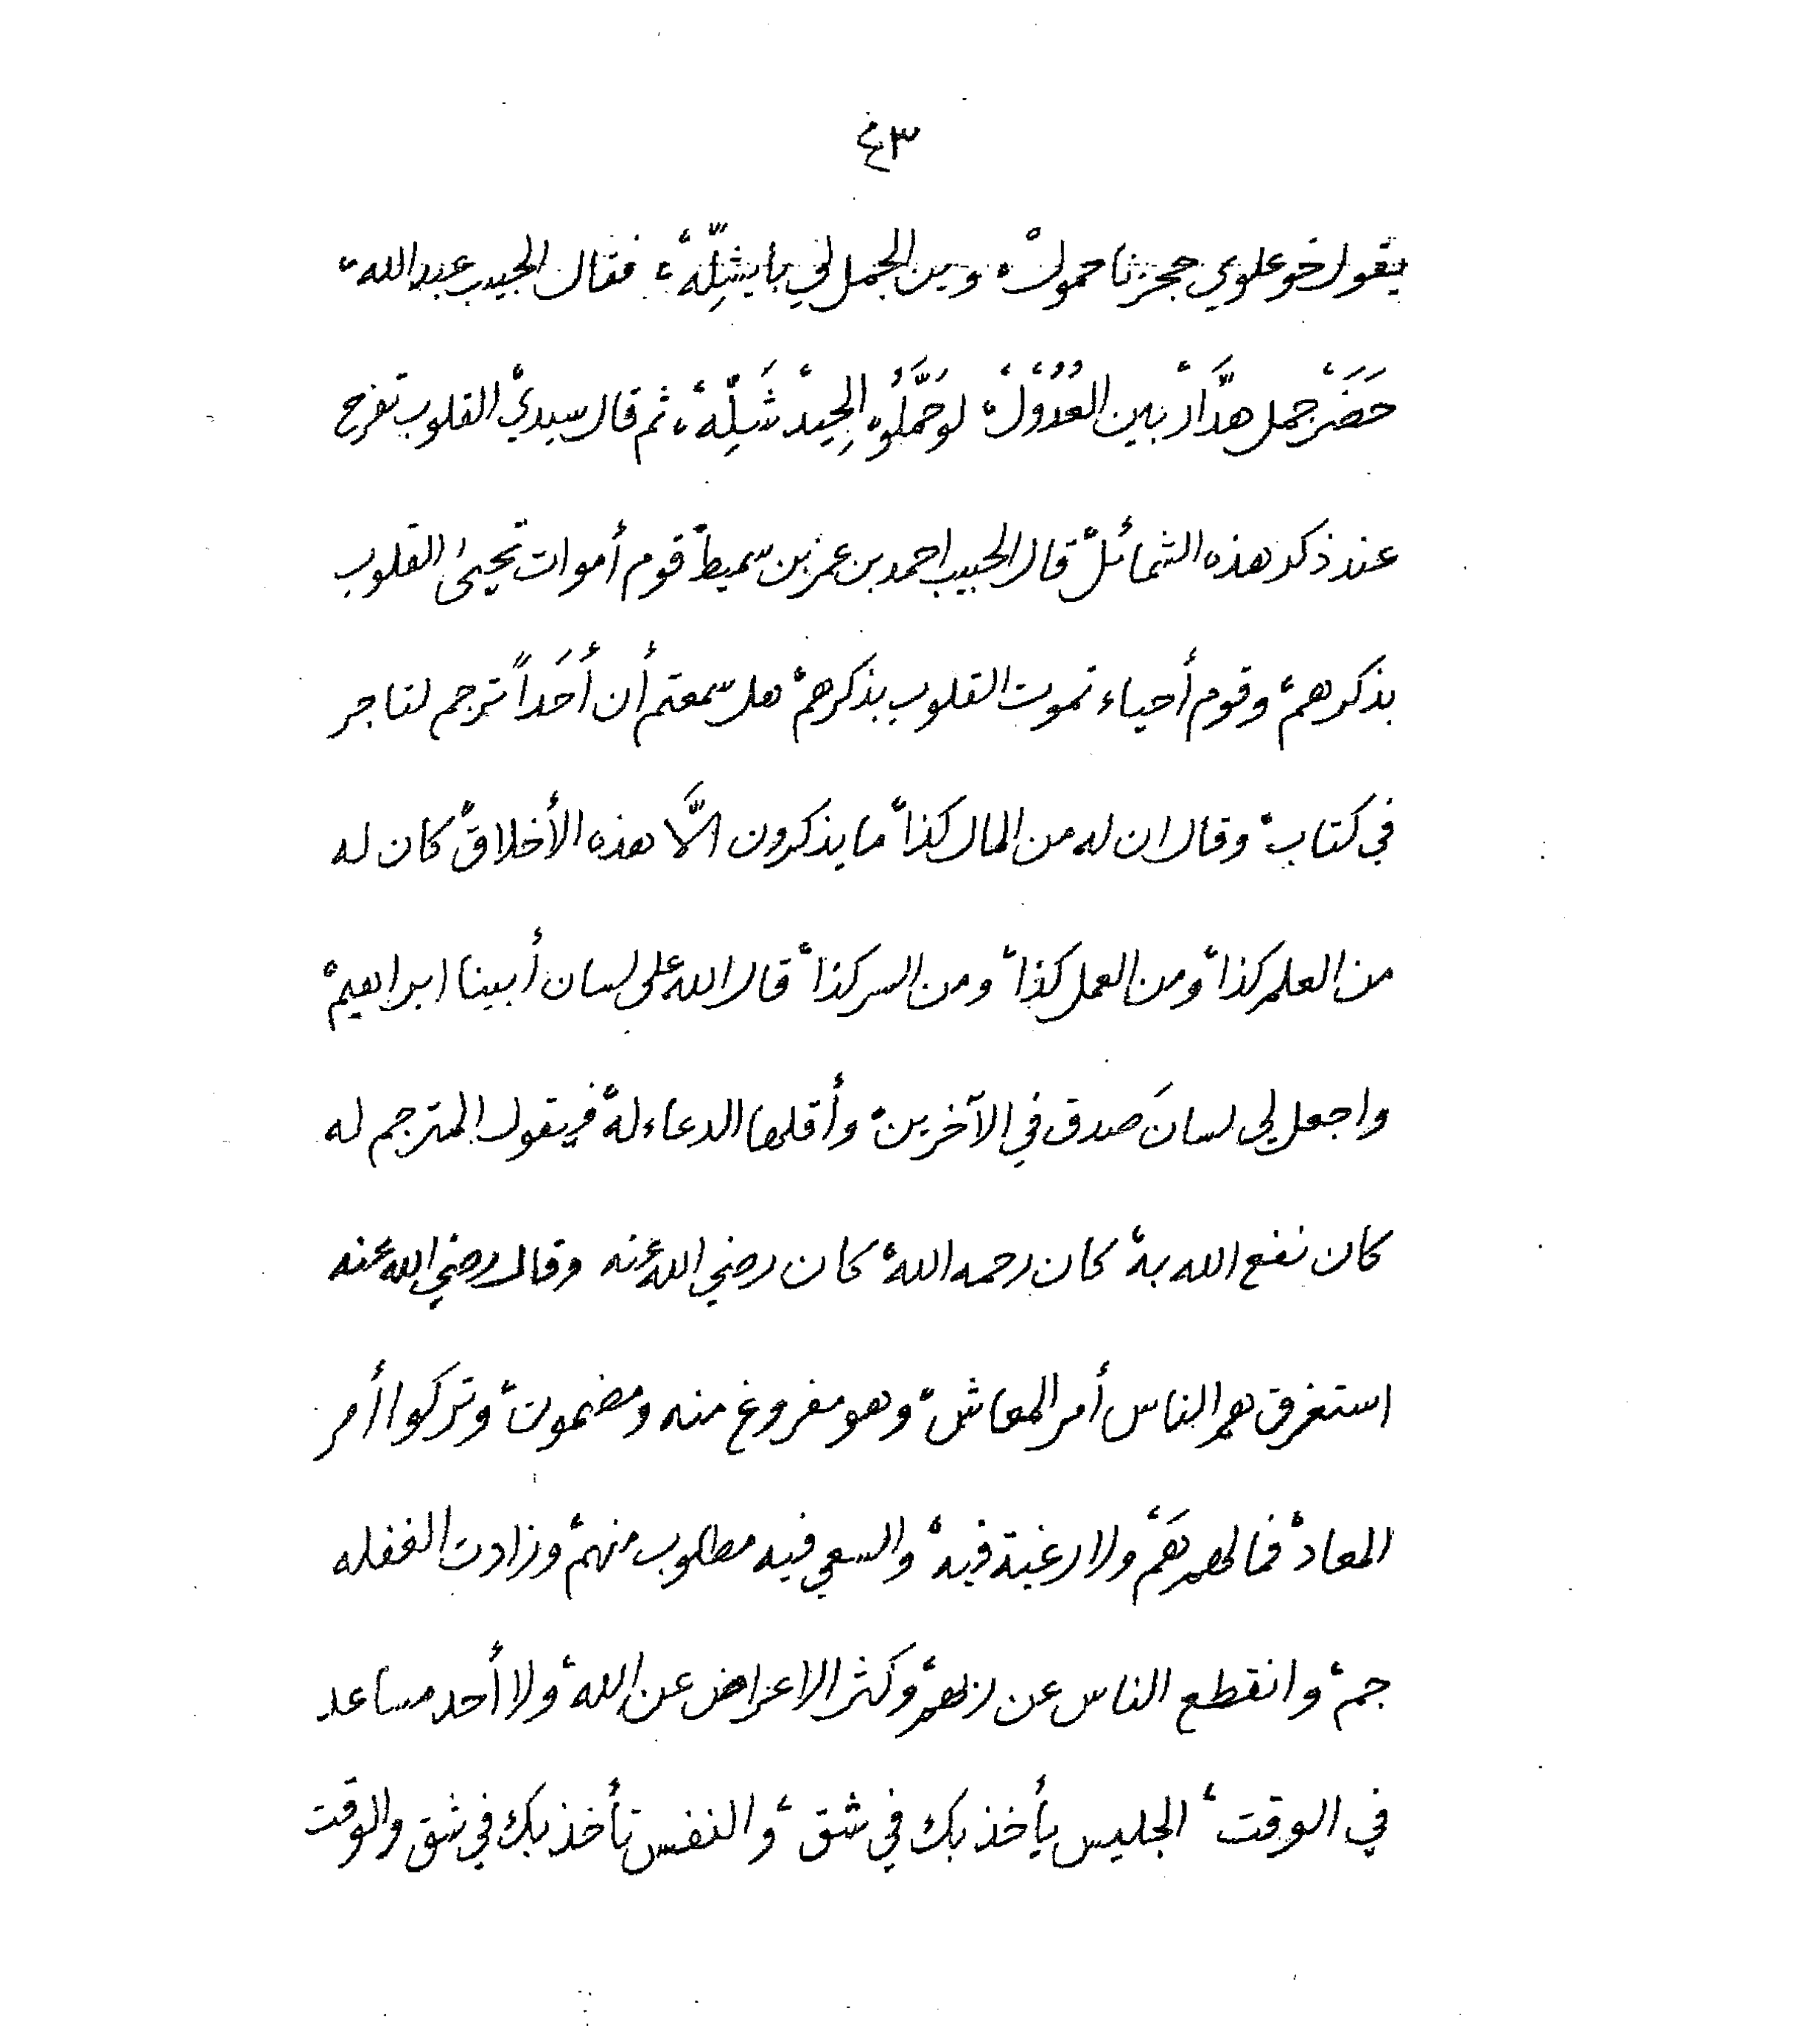 ٤٣
يقول خو علوي حجزنا حمول، وين الجمل لي بايشِلّه، فقال الحبيب عبدالله،
حَضَرْ جمل هدَّار بين العُدُوْل، لو حَمَّلُوه الحِيدْ شَلِّهْ، ثم قال سيدي، القلوب تفرح
عند ذكر هذه الشمائل، قال الحبيب احمد بن عمر بن سميط، قوم أموات تحيىٰ القلوب
بذكرهم، وقوم أحياء تموت القلوب بذكرهم، هل سمعتم أن أَحَداً ترجم لتاجر
في كتاب، وقال ان له من المال كذا، ما يذكرون الاَّ هذه الأخلاق، كان له
من العلم كذا، ومن العمل كذا، ومن السر كذا، قال الله على لسان أبينا ابراهيم،
واجعل لي لسانَ صدق في الآخرين، وأقلها الدعاء له، فيقول المترجم له
كان نفع الله به، كان رحمه الله، كان رضي الله عنه وقال رضي الله عنه
استغرق هم الناس أمر المعاش، وهو مفروغ منه ومضمون، وتركوا أمر
المعاد، فما لهم هَمّ، ولا رغبة فيه، والسعي فيه مطلوب منهم، وزادت الغفله
جم، وانقطع الناس عن ربهم، وكثر الاعراض عن الله، ولا أحد مساعد
في الوقت، الجليس يأخذ بك في شق، والنفس تأخذ بك في شق والوقت